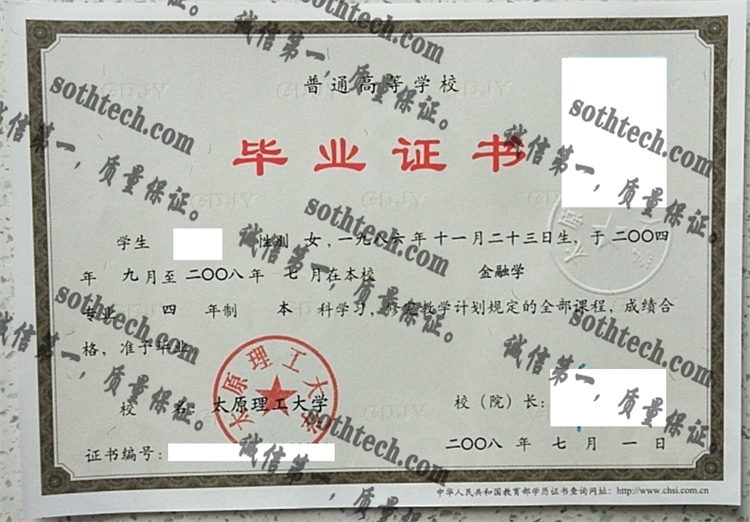 普通高等学校
毕业证书
学生 性别 女，一九八六年 十一月二十三日生，于二〇〇四
年 九月至二〇〇八年 七月在本校 金融学
专业 四 年制 本 科学习，修完教学计划规定的全部课程，成绩合
格，准予毕业。
太原理工大学
校 名：太原理工大学 校（院）长：
证书编号： 二〇〇八 年 七 月 一日
中华人民共和国教育部学历证书查询网址：http://www.chsi.com.cn
GDJY
GDJY
GDJY
sothtech.com
诚信第一，质量保证。
sothtech.com
诚信第一，质量保证。
sothtech.com
诚信第一，质量保证。
sothtech.com
诚信第一，质量保证。
sothtech.com
诚信第一，质量保证。
sothtech.com
诚信第一，质量保证。
sothtech.com
诚信第一，质量保证。